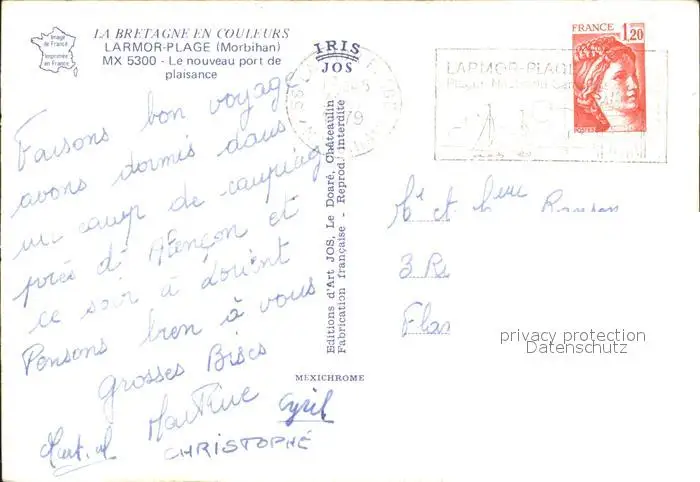 Image
de France
Imprimée
en France
LA BRETAGNE EN COULEURS
LARMOR-PLAGE (Morbihan)
MX 5300 - Le nouveau port de
plaisance
Faisons bon voyage
avons dormis dans
un camp de camping
près d'Alençon et
ce soir à Lorient
Pensons bien à vous
Grosses Bises
Martial Martine Cyril
CHRISTOPHE
IRIS
JOS
Editions d'Art JOS, Le Doaré, Châteaulin
Fabrication française - Reprod. interdite
MEXICHROME
79
LARMOR-PLAGE
FRANCE 1,20
POSTES
Mr et Mme
3 R
Fla
privacy protection
Datenschutz